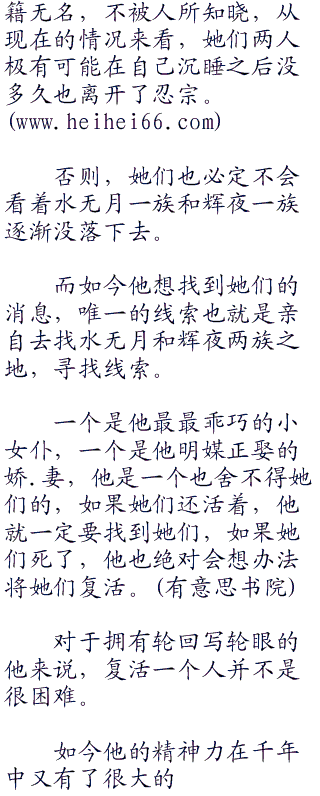 籍无名，不被人所知晓，从
现在的情况来看，她们两人
极有可能在自己沉睡之后没
多久也离开了忍宗。
(www.heihei66.com)
否则，她们也必定不会
看着水无月一族和辉夜一族
逐渐没落下去。
而如今他想找到她们的
消息，唯一的线索也就是亲
自去找水无月和辉夜两族之
地，寻找线索。
一个是他最最乖巧的小
女仆，一个是他明媒正娶的
娇.妻，他是一个也舍不得她
们的，如果她们还活着，他
就一定要找到她们，如果她
们死了，他也绝对会想办法
将她们复活。(有意思书院)
对于拥有轮回写轮眼的
他来说，复活一个人并不是
很困难。
如今他的精神力在千年
中又有了很大的